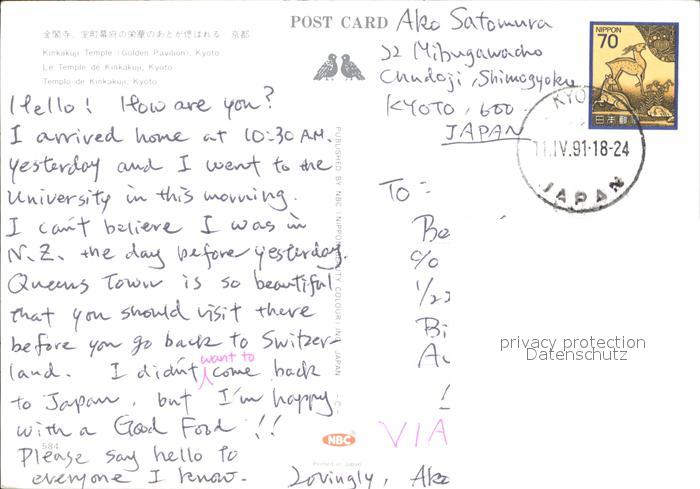 金閣寺、室町幕府の栄華のあとが偲ばれる 京都
Kinkakuji Temple (Golden Pavilion), Kyoto
Le Temple de Kinkakuji, Kyoto
Templo de Kinkakuji, Kyoto
POST CARD
Hello! How are you?
I arrived home at 10:30 AM.
yesterday and I went to the
University in this morning.
I can't believe I was in
N.Z. the day before yesterday.
Queens Town is so beautiful
that you should visit there
before you go back to Switzer-
land. I didn't want to come back
to Japan, but I'm happy
with a Good Food!!
Please say hello to
everyone I know.
Lovingly, Ako
584
PUBLISHED BY NBC (NIPPON BEAUTY COLOUR INC.) JAPAN
-C-
NBC
Printed in Japan
Ako Satomura
22 Mibugawacho
Chudoji, Shimogyoku
KYOTO, 600
JAPAN
NIPPON
70
日本郵便
KYO
11.IV.91·18-24
JAPAN
To:
Be
c/o
1/22
Bi
Au
VIA
privacy protection
Datenschutz